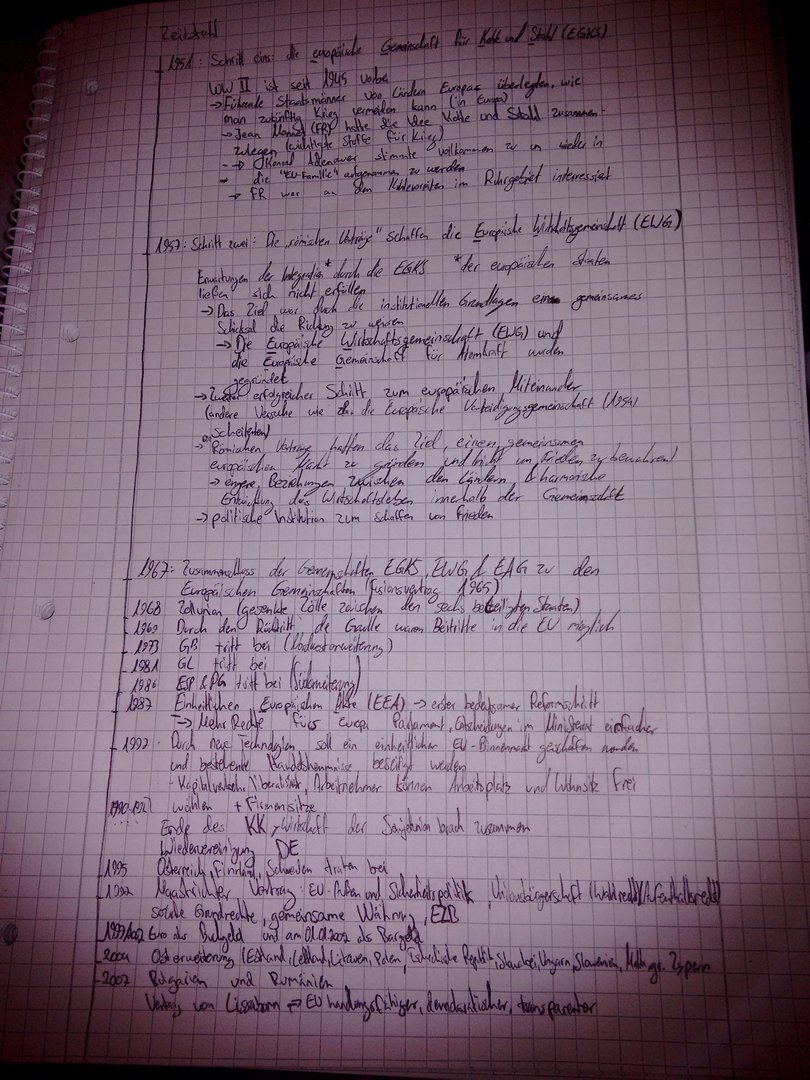 Zeitstrahl
1951: Schritt eins: die europäische Gemeinschaft für Kohle und Stahl (EGKS)
WW II ist seit 1945 vorbei
→ Führende Staatsmänner von Ländern Europas überlegten, wie
man zukünftig Krieg vermeiden kann (in Europa)
→ Jean Monnet (FR) hatte die Idee Kohle und Stahl zusammen-
zulegen (wichtigste Stoffe für Krieg)
→ Konrad Adenauer stimmte vollkommen zu um wieder in
die "EU-Familie" aufgenommen zu werden
→ FR war an den Kohlevorräten im Ruhrgebiet interessiert
1957: Schritt zwei: Die „römischen Verträge" schaffen die Europäische Wirtschaftsgemeinschaft (EWG)
Erwartungen der Integration* durch die EGKS *der europäischen Staaten
ließen sich nicht erfüllen
→ Das Ziel war durch die institutionellen Grundlagen gemeinsames
Schicksal die Richtung zu weisen
→ Die Europäische Wirtschaftsgemeinschaft (EWG) und
die Europäische Gemeinschaft für Atomkraft wurden
gegründet
→ Zweiter erfolgreicher Schritt zum europäischen Miteinander
(andere Versuche wie zb. die Europäische Verteidigungsgemeinschaft (1954)
scheiterten)
→ Römischen Verträge hatten das Ziel, einen gemeinsamen
europäischen Markt zu gründen und nicht um Frieden zu bewahren)
→ engere Beziehungen zwischen den Ländern & harmonische
Entwicklung des Wirtschaftsleben innerhalb der Gemeinschaft
→ politische Institution zum schaffen von Frieden
1967: Zusammenschluss der Gemeinschaften EGKS, EWG & EAG zu den
Europäischen Gemeinschaften (Fusionsvertrag 1965)
1968 Zollunion (gesenkte Zölle zwischen den sechs beteiligten Staaten)
1969 Durch den Rücktritt de Gaulle waren Beitritte in die EU möglich
1973 GB tritt bei (Nordwesterweiterung)
1981 GL tritt bei
1986 ESP & PG tritt bei (Süderweiterung)
1987 Einheitlichen Europäischen Akte (EEA) → erster bedeutsamer Reformschritt
→ Mehr Rechte fürs Europa Parlament, Entscheidungen im Ministerrat einfacher
1992 Durch neue Technologien soll ein einheitlicher EU-Binnenmarkt geschaffen werden
und bestehende Handelshemmnisse beseitigt werden
- Kapitalverkehr liberalisiert, Arbeitnehmer können Arbeitsplatz und Wohnsitz frei
wählen + Firmensitze
Ende des KK, Wirtschaft der Sowjetunion brach zusammen
Wiedervereinigung DE
1995 Österreich, Finnland, Schweden traten bei
1992 Maastrichter Vertrag: EU-Außen und Sicherheitspolitik, Unionsbürgerschaft (Wahlrecht)(Aufenthaltsrecht)
soziale Grundrechte, gemeinsame Währung, EZB
1999/2002 Euro als Buchgeld und am 01.01.2002 als Bargeld
2004 Osterweiterung (Estland, Lettland, Litauen, Polen, Tschechische Republik, Slowakei, Ungarn, Slowenien, Malta, gr. Zypern
2007 Bulgarien und Rumänien
Vertrag von Lissabonn → EU handlungsfähiger, demokratischer, transparenter